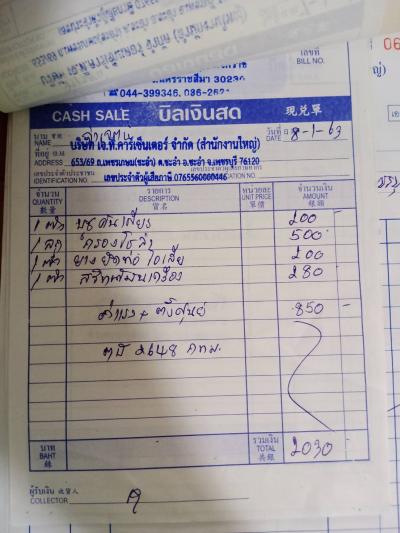 นครราชสีมา 30230
☎ 044-399346, 086-262
เลขที่
BILL NO.
CASH SALE บิลเงินสด 現兑單
นาม
NAME
วันที่ 8-1-63
DATE
บริษัท เอ.ที.คาร์เซ็นเตอร์ จำกัด (สำนักงานใหญ่)
ที่อยู่
ADDRESS 653/69 ถ.เพชรเกษม(ชะอำ) ต.ชะอำ อ.ชะอำ จ.เพชรบุรี 76120
เลขประจำตัวประชาชน เลขประจำตัวผู้เสียภาษี 0765560000446
IDENTIFICATION NO.
จำนวน รายการ หน่วยละ จำนวนเงิน
QUANTITY DESCRIPTION UNIT PRICE AMOUNT
數量 貨名 單價 銀碼
1 ตัว 200 -
1 ลูก 500 -
1 ตัว 200 -
1 ตัว 280 -
ค่าแรง + ตั้งศูนย์ 850 -
2648 กทม.
บาท รวมเงิน
BAHT TOTAL 2030 -
銖 共銀
ผู้รับเงิน 收貨人
COLLECTOR